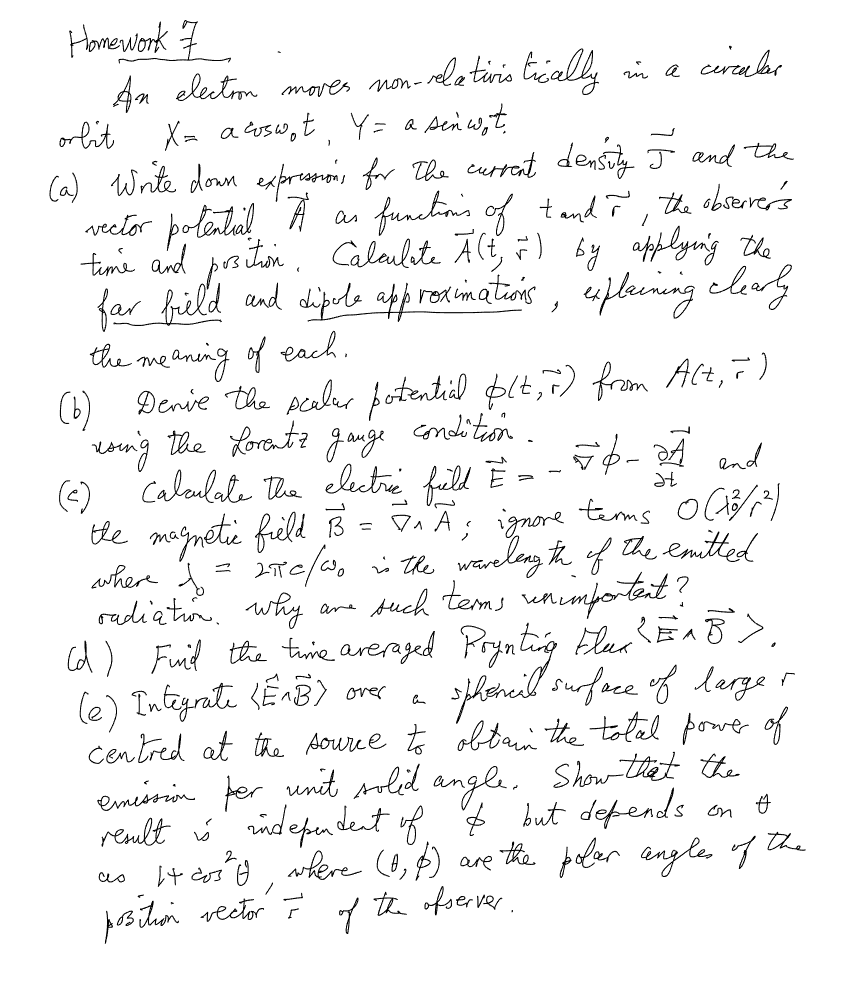 Homework 7
An electron moves non-relativistically in a circular
orbit X = a cos ω₀t, Y = a sin ω₀t.
(a) Write down expressions for the current density J⃗ and the
vector potential A⃗ as functions of t and r⃗, the observer's
time and position. Calculate A⃗(t, r⃗) by applying the
far field and dipole approximations, explaining clearly
the meaning of each.
(b) Derive the scalar potential ϕ(t, r⃗) from A(t, r⃗)
using the Lorentz gauge condition.
(c) Calculate the electric field E⃗ = - ∇⃗ϕ - ∂A⃗/∂t and
the magnetic field B⃗ = ∇⃗ ∧ A⃗; ignore terms O(λ₀²/r²)
where λ₀ = 2πc/ω₀ is the wavelength of the emitted
radiation. Why are such terms unimportant?
(d) Find the time averaged Poynting Flux <E⃗ ∧ B⃗>.
(e) Integrate <E⃗∧B⃗> over a spherical surface of large r
centred at the source to obtain the total power of
emission per unit solid angle. Show that the
result is independent of ϕ but depends on θ
as 1+cos²θ, where (θ, ϕ) are the polar angles of the
position vector r⃗ of the observer.